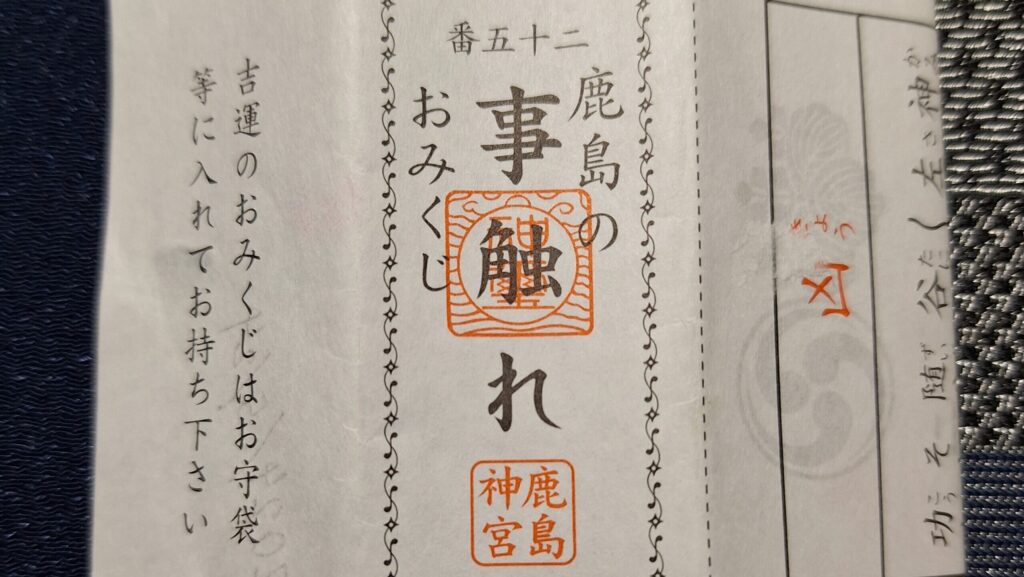 きょう
凶
二十五番
鹿島の
事触れ
おみくじ
鹿島
神宮
吉運のおみくじはお守袋
等に入れてお持ち下さい